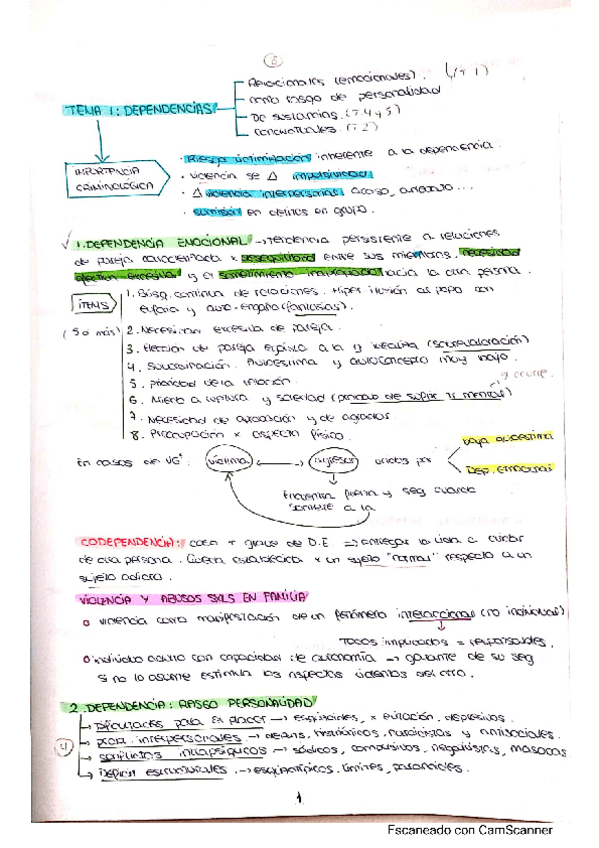 6
Relacionales (emocionales). (T 1)
TEMA 1: DEPENDENCIAS
como rasgo de personalidad
De sustancias. (T.4 y 5)
conductuales (T 2)
IMPORTANCIA CRIMINOLÓGICA
· Riesgo victimización inherente a la dependencia.
· violencia se Δ impulsividad
· Δ violencia interpersonal acoso, ...
· sumisión en delitos en grupo.
√ 1. DEPENDENCIA EMOCIONAL → tendencia persistente a relaciones
de pareja caracterizada x desequilibrio entre sus miembros, necesidad
afectiva excesiva y el sometimiento inapropiado hacia la otra persona.
ITEMS
1. Búsq. continua de relaciones. Hiper ilusión al ppio con
euforia y auto-engaño (fantasías).
(5 o más) 2. Necesitan excesiva de pareja.
3. Elección de pareja egoísta a la q idealiza (sobrevaloración)
4. Subordinación. Autoestima y autoconcepto muy bajo.
5. prioridad de la relación.
6. Miedo a ruptura y soledad (proceso de sufrir mental)
q ocurre.
7. Necesidad de aprobación y de agradar.
8. Preocupación x aspecto físico.
En casos de VGª: víctima ↔ agresor unidos por
baja autoestima
Dep. emocional
Encuentra fuerza y seg cuando
somete a la
CODEPENDENCIA: caso + grave de D.E ⇒ entregar la vida a cuidar
de otra persona. Queda establecida x un sujeto "normal" respecto a un
sujeto adicto.
VIOLENCIA Y ABUSOS SXLS EN FAMILIA
violencia como manifestación de un fenómeno interaccional (no individual)
Todos implicados = responsables.
individuo adulto con capacidad de autonomía → garante de su seg
si no lo asume estimula los aspectos violentos del otro.
2. DEPENDENCIA: RASGO PERSONALIDAD
4
Dificultades para el placer → esquizoides, x evitación, depresivos.
prob. interpersonales → depens, histriónicos, narcisistas y antisociales.
conflictos intrapsíquicos → sádicos, compulsivos, negativistas, masocas
Déficit estructurales. → esquizotípicos, límites, paranoides.
1
Escaneado con CamScanner